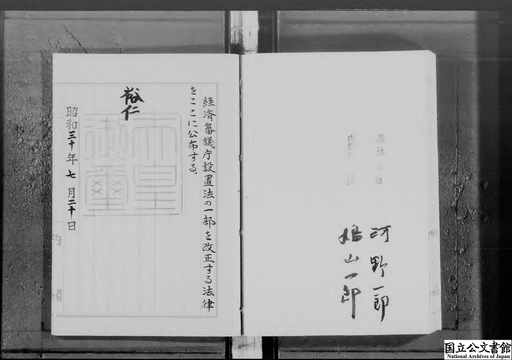 経済審議庁設置法の一部を改正する法律
をここに公布する。
裕仁
天皇
御璽
昭和三十年七月二十日
河野一郎
鳩山一郎
国立公文書館
National Archives of Japan